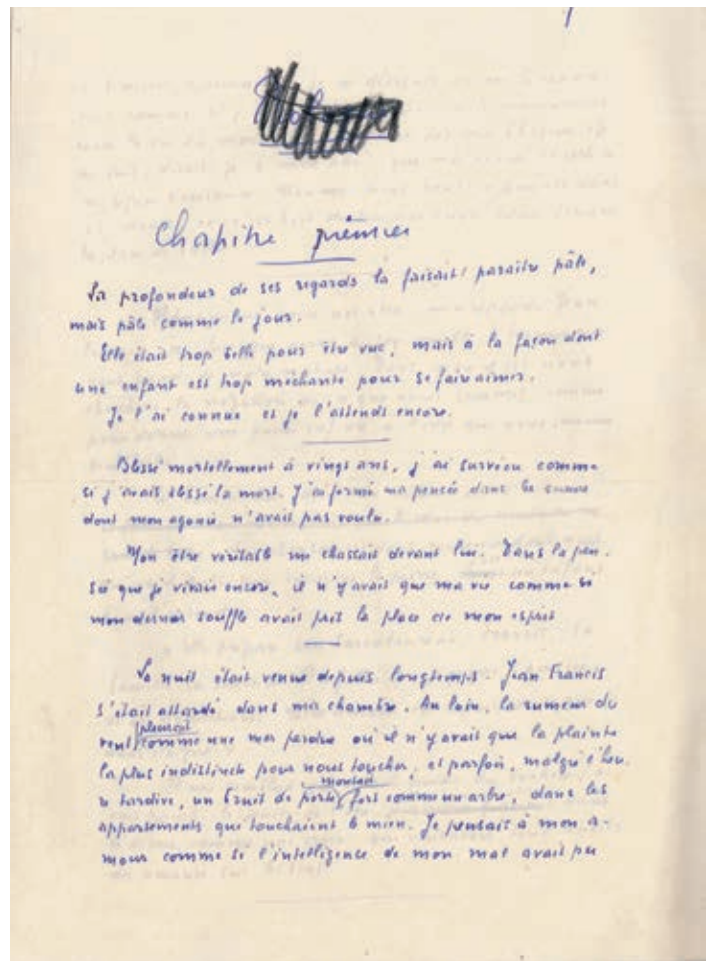 Chapitre premier
La profondeur de ses regards la faisait paraître pâle,
mais pâle comme le jour.
Elle était trop belle pour être vue, mais à la façon dont
une enfant est trop méchante pour se faire aimer.
Je l'ai connue et je l'attends encore.
Blessé mortellement à vingt ans, j'ai survécu comme
si j'avais blessé la mort. J'ai formé ma pensée dans le
dont mon agonie n'avait pas voulu.
Mon être véritable me chassait devant lui. Dans la pen-
sée que je vivais encore, il n'y avait que ma vie comme si
mon dernier souffle avait pris la place de mon esprit
La nuit était venue depuis longtemps. Jean Francis
s'était attardé dans ma chambre. Au loin, la rumeur du
pleurait
vent comme une mer perdue où il n'y avait que la plainte
la plus indistincte pour nous toucher, et parfois, malgré l'heu-
montait
re tardive, un bruit de porte, fort comme un arbre, dans les
appartements qui touchaient le mien. Je pensais à mon a-
mour comme si l'intelligence de mon mal avait pu